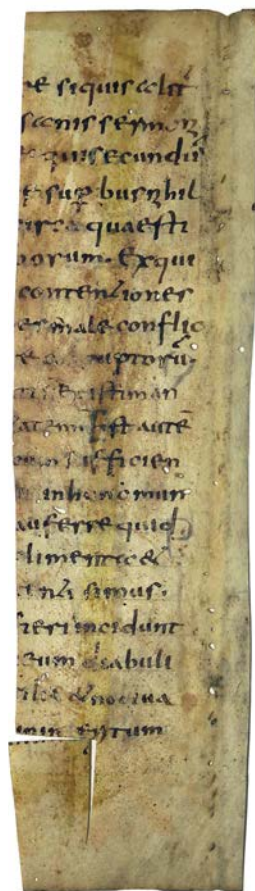 re siquis alit
s sanis sermon
quis secundū
e sup bus nihil
circa quaesti
borum. Exqui
contentiones
es male conflic
e corruptorū.
existiman
tatem. Est autē
sufficien
in honc mun
auferre quid
limenta &
tenti simus.
fieri incidunt
eum diabuli
tilia & nociua
interitum